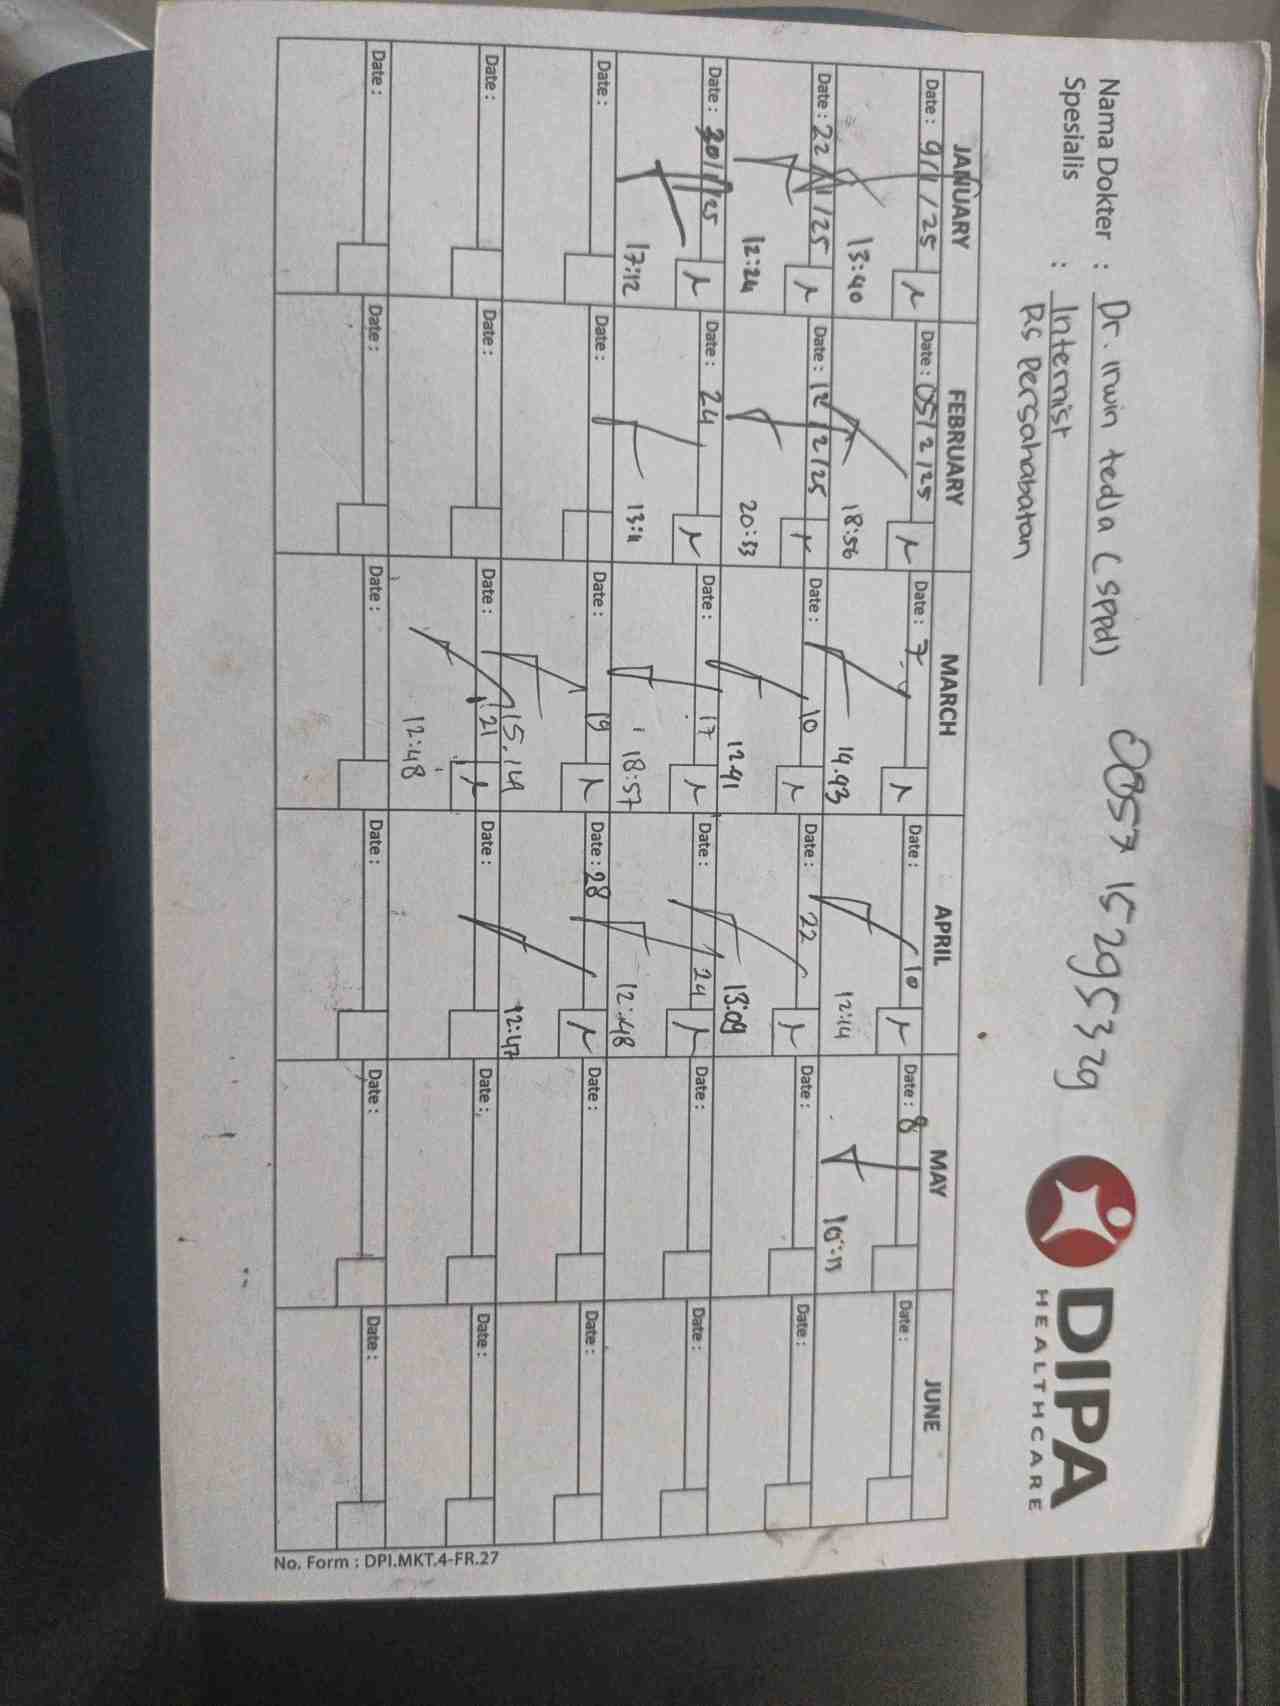 Nama Dokter : Dr. irwin tedja (sppd)
0857 15295329
Spesialis : Internist
RS Persahabatan
DIPA
HEALTHCARE
JANUARY FEBRUARY MARCH APRIL MAY JUNE
Date : 9/1/25 Date : 05/2/25 Date : 7 Date : 10 Date : 8 Date :
13:40 18:56 14.43 12:14
Date : 22/1/25 Date : 12/2/25 Date : 10 Date : 22 Date : Date :
12:24 20:33 12.41 13:09
Date : 30/1/25 Date : 24 Date : 17 Date : 24 Date : Date :
17:12 13:11 18:57 12:48
Date : Date : Date : 19 Date : 28 Date : Date :
15.14 12:47
Date : Date : Date : 21 Date : Date : Date :
12:48
Date : Date : Date : Date : Date : Date :
No. Form : DPI.MKT.4-FR.27